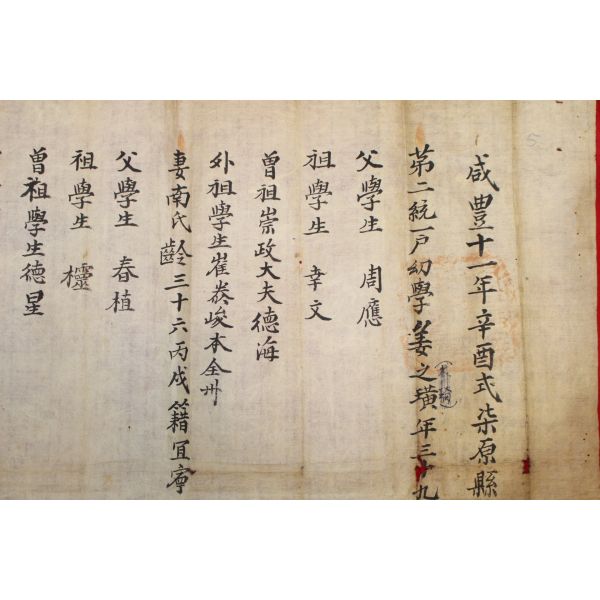 咸豊十一年辛酉式柒原縣
苐二統一戶幼學姜之璜年三十九
父學生 周應
祖學生 幸文
曽祖崇政大夫德海
外祖學生崔峻本全州
妻南氏齡三十六丙戌籍宜寧
父學生 春植
祖學生 欞
曽祖學生德星